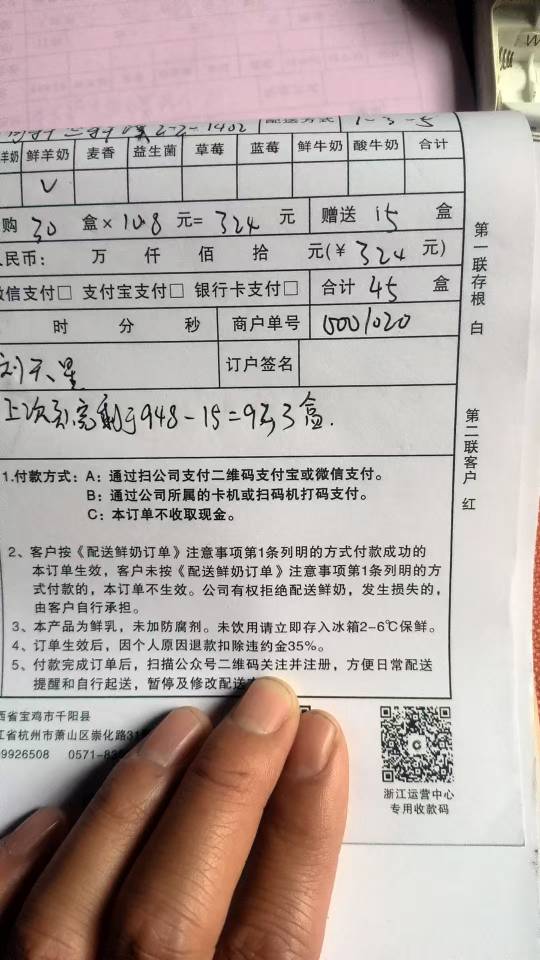 2-2-1402 配送方式 1-3-5
羊奶 鲜羊奶 麦香 益生菌 草莓 蓝莓 鲜牛奶 酸牛奶 合计
√
购 30 盒×10.8 元= 324 元 赠送 15 盒
民币: 万 仟 佰 拾 元(¥ 324 元)
微信支付□ 支付宝支付□ 银行卡支付□ 合计 45 盒
时 分 秒 商户单号 15001020
订户签名
948-15=933盒.
第一联存根 白
第二联客户 红
1.付款方式: A: 通过扫公司支付二维码支付宝或微信支付。
B: 通过公司所属的卡机或扫码机打码支付。
C: 本订单不收取现金。
2、客户按《配送鲜奶订单》注意事项第1条列明的方式付款成功的
本订单生效，客户未按《配送鲜奶订单》注意事项第1条列明的方
式付款的，本订单不生效。公司有权拒绝配送鲜奶，发生损失的，
由客户自行承担。
3、本产品为鲜乳，未加防腐剂。未饮用请立即存入冰箱2-6℃保鲜。
4、订单生效后，因个人原因退款扣除违约金35%。
5、付款完成订单后，扫描公众号二维码关注并注册，方便日常配送
提醒和自行起送，暂停及修改配送
西省宝鸡市千阳县
江省杭州市萧山区崇化路31
09926508 0571-83
浙江运营中心
专用收款码